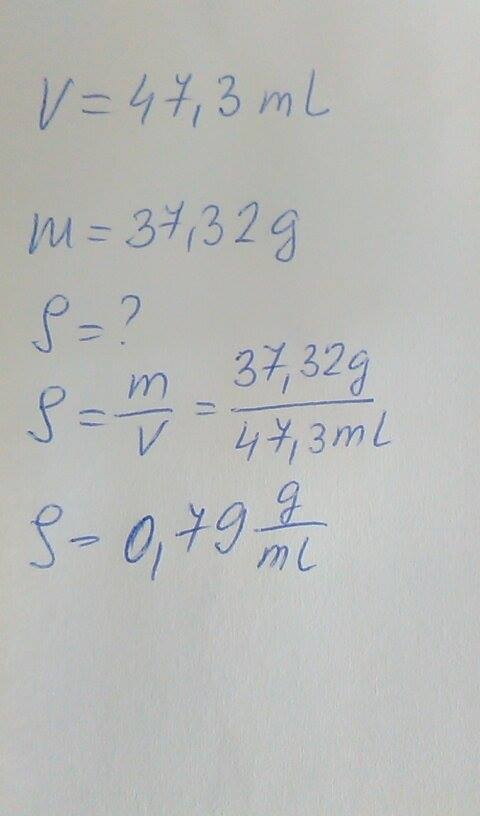 V = 47,3 mL
m = 37,32 g
ρ = ?
ρ = m/V = 37,32g/47,3mL
ρ = 0,79 g/mL